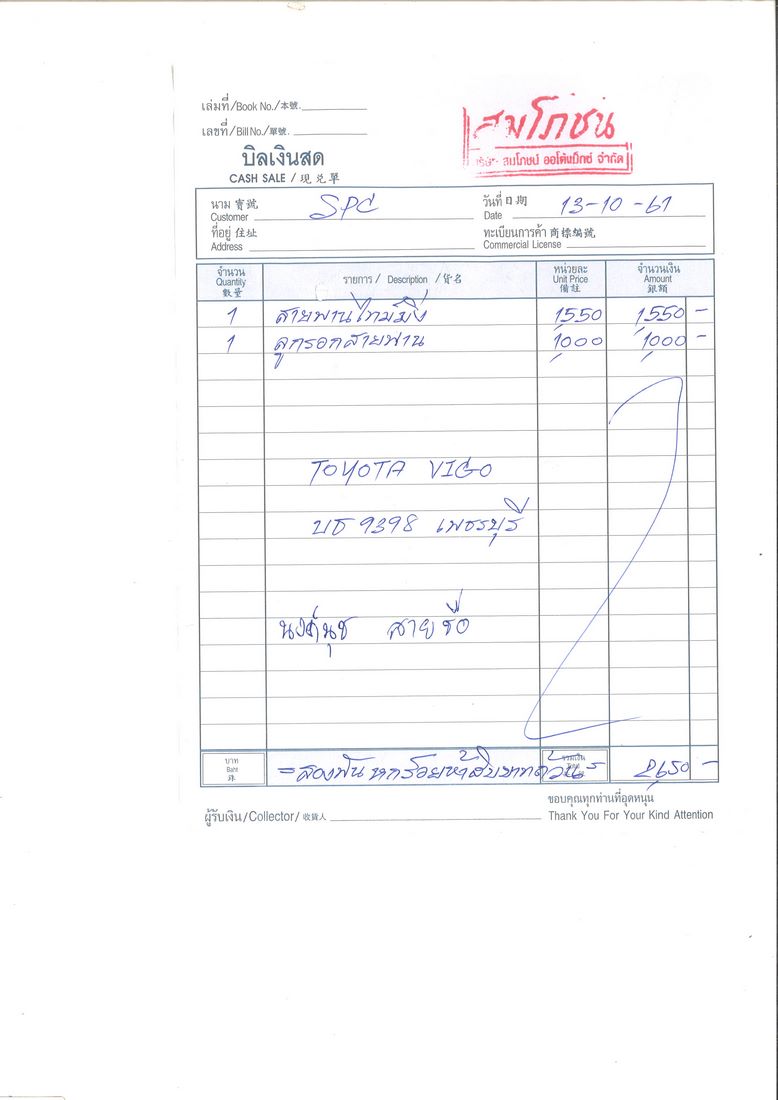 เล่มที่/Book No./本號.
เลขที่/Bill No./單號.
สมโภชน์
บริษัท สมโภชน์ ออโต้แม็กซ์ จำกัด
บิลเงินสด
CASH SALE / 現兑單
นาม 寳號 Customer SPC
วันที่ 日期 Date 13-10-61
ที่อยู่ 住址 Address
ทะเบียนการค้า 商標編號 Commercial License
จำนวน Quantity 數量 รายการ / Description / 貨名 หน่วยละ Unit Price 備註 จำนวนเงิน Amount 銀額
1 สายพานไทม์มิ่ง 1,550 1,550 -
1 ลูกรอกสายพาน 1,000 1,000 -
TOYOTA VIGO
บธ 9398 เพชรบุรี
สายชื่อ
บาท Baht 銖 = สองพันหกร้อยห้าสิบบาทถ้วน = รวมเงิน 2,650 -
ผู้รับเงิน/Collector/收貨人
ขอบคุณทุกท่านที่อุดหนุน
Thank You For Your Kind Attention